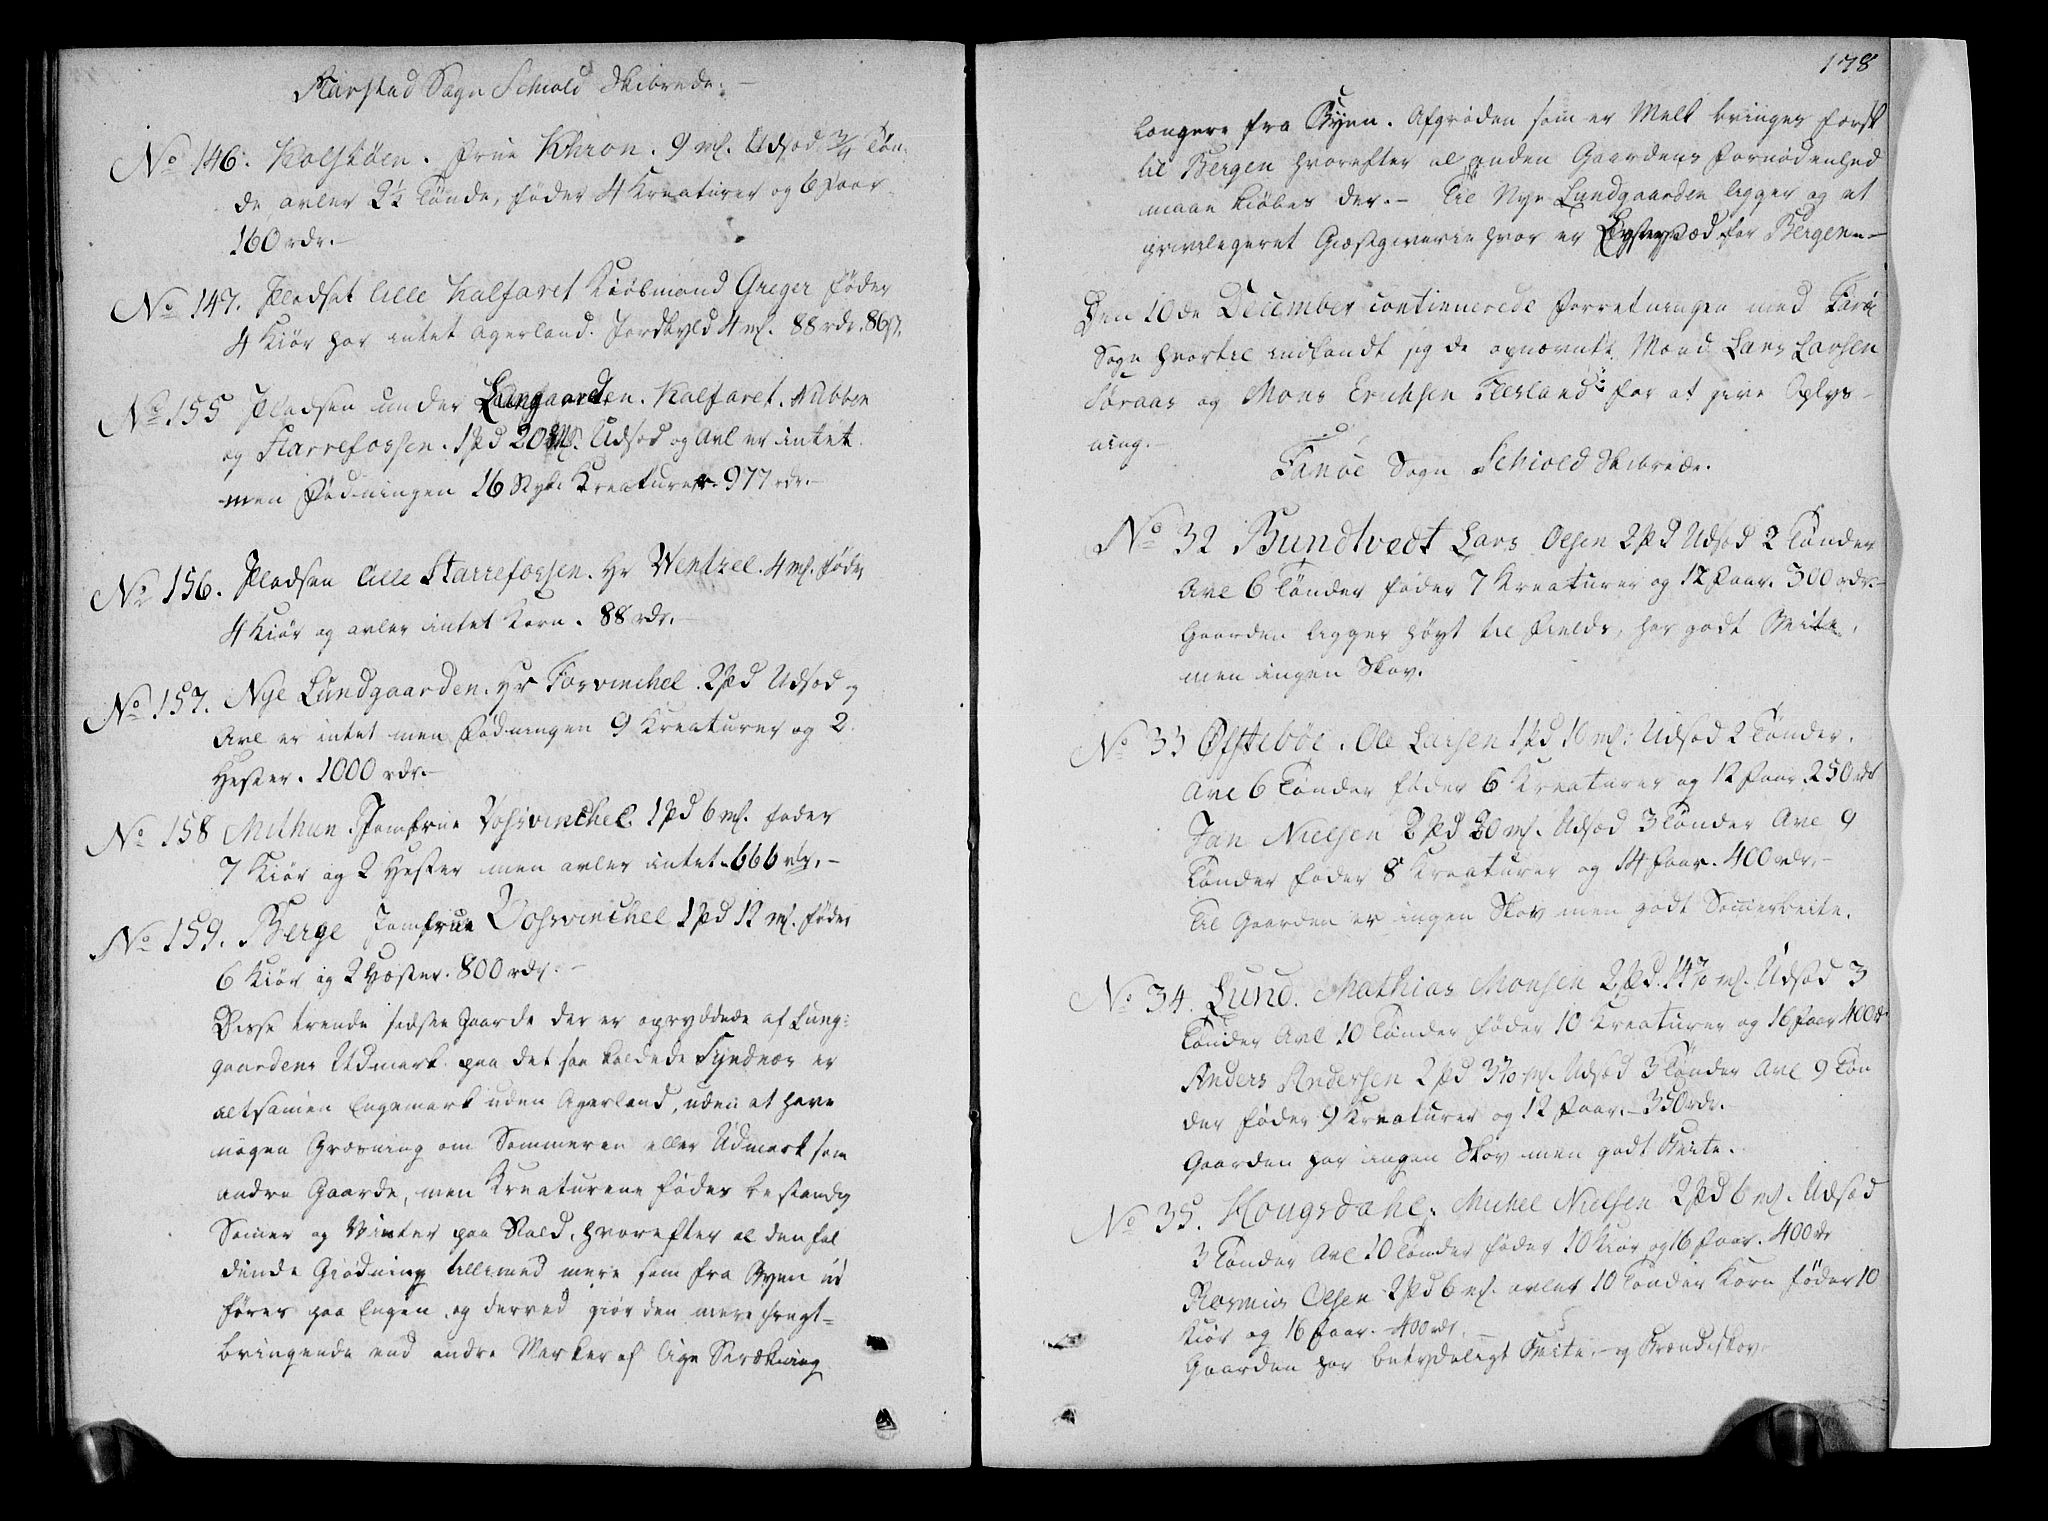 Aarstad Sogn Schiold Skibrede. –
No 146. Kalfarøen. Frue Khron. 9 mk. Udsæd 3/4 Tøn-
de, avler 2½ Tønde, føder 4 Kreaturer og 6 Faar.
160 rdr. –
No 147. Pladset lille Kalfaret Kiøbmand Greger føder
4 Kiør har intet Agerland. Jordskyld 4 mk. 88 rdr. 86 s.
No 155 Pladsen under Lungaarden. Kalfaret. Nubben
og Starrefossen. 1 Pd 20 Mk. Udsæd og Avl er intet
men Fødningen 16 Stk. Kreaturer. 977 rdr. –
No 156. Pladsen lille Starrefossen. Hr Wentzel. 4 mk. føder
4 Kiør og avler intet Korn. 88 rdr. –
No 157. Nye Lundgaarden. Hr Forvinchel. 2 Pd Udsæd og
Avl er intet men Fødningen 9 Kreaturer og 2
Hester. 1000 rdr. –
No 158 Mithun. Jomfrue Vosvinchel 1 Pd 6 mk. føder
7 Kiør og 2 Hester men avler intet. 666 rdr. –
No 159. Berge Jomfrue Vosvinchel 1 Pd 12 mk. føder
6 Kiør og 2 Hester. 800 rdr. –
Disse trende sidste Gaarde der er opryddede af Lung-
gaardens Udmark paa det saa kaldede Fyndnæs er
altsammen Engemark uden Agerland, uden at have
nogen Græsning om Sommeren eller Udmark som
andre Gaarde, men Kreaturene føder bestandig
Somer og Vinter paa Stald, hvorefter al den fal
dende Giødning tillimed mere som fra Byen ud
føres paa Engen, og derved giør den mere frugt-
bringende end andre Marker af lige Strækning
178
længere fra Byen. Afgrøden som er Melk bringes først
til Bergen hvorefter al anden Gaardens Fornødenhed
maae kiøbes der. – Til Nye Lundgaarden ligger og et
privilegeret Giæstgiverie hvor er Lyststed for Bergen. –
Den 10de December continuerede Forretningen med Fanø
Sogn hvortil indfandt sig de opnævnte Mænd Lars Larsen
Søraas og Mons Erichsen Flesland for at give Oplys-
ning. –
Fanøe Sogn Schiold Skibrede.
No 32 Bundtvedt Lars Olsen 2 Pd Udsæd 2 Tønder
Avl 6 Tønder føder 7 Kreaturer og 12 Faar. 300 rdr. –
Gaarden ligger høyt til Fields, har godt Beite,
men ingen Skov.
No 33 Øfstebøe. Ole Larsen 1 Pd 16 mk: Udsæd 2 Tønder.
Avl 6 Tønder føder 6 Kreaturer og 12 Faar 250 rdr
Jan Nielsen 2 Pd 20 mk. Udsæd 3 Tønder Avl 9
Tønder føder 8 Kreaturer og 14 Faar. 400 rdr. –
Til Gaarden er ingen Skov men godt Somerbeite.
No 34. Lund. Mathias Monsen 2 Pd. mk. Udsæd 3
Tønder Avl 10 Tønder føder 10 Kreaturer og 16 Faar 400 rdr
Anders Andersen 2 Pd mk. Udsæd 3 Tønder Avl 9 Tøn
der føder 9 Kreaturer og 12 Faar. – 350 rdr. –
Gaarden har ingen Skov men godt Beite.
No 35. Hougsdahl. Michel Nielsen 2 Pd 6 mk. Udsæd
3 Tønder Avl 10 Tønder føder 10 Kiør og 16 Faar. 400 rdr
Rasmus Olsen 2 Pd 6 mk. avler 10 Tønder Korn føder 10
Kiør og 16 Faar. – 400 rdr.
Gaarden har betydeligt Beite. – og Brændeskov.